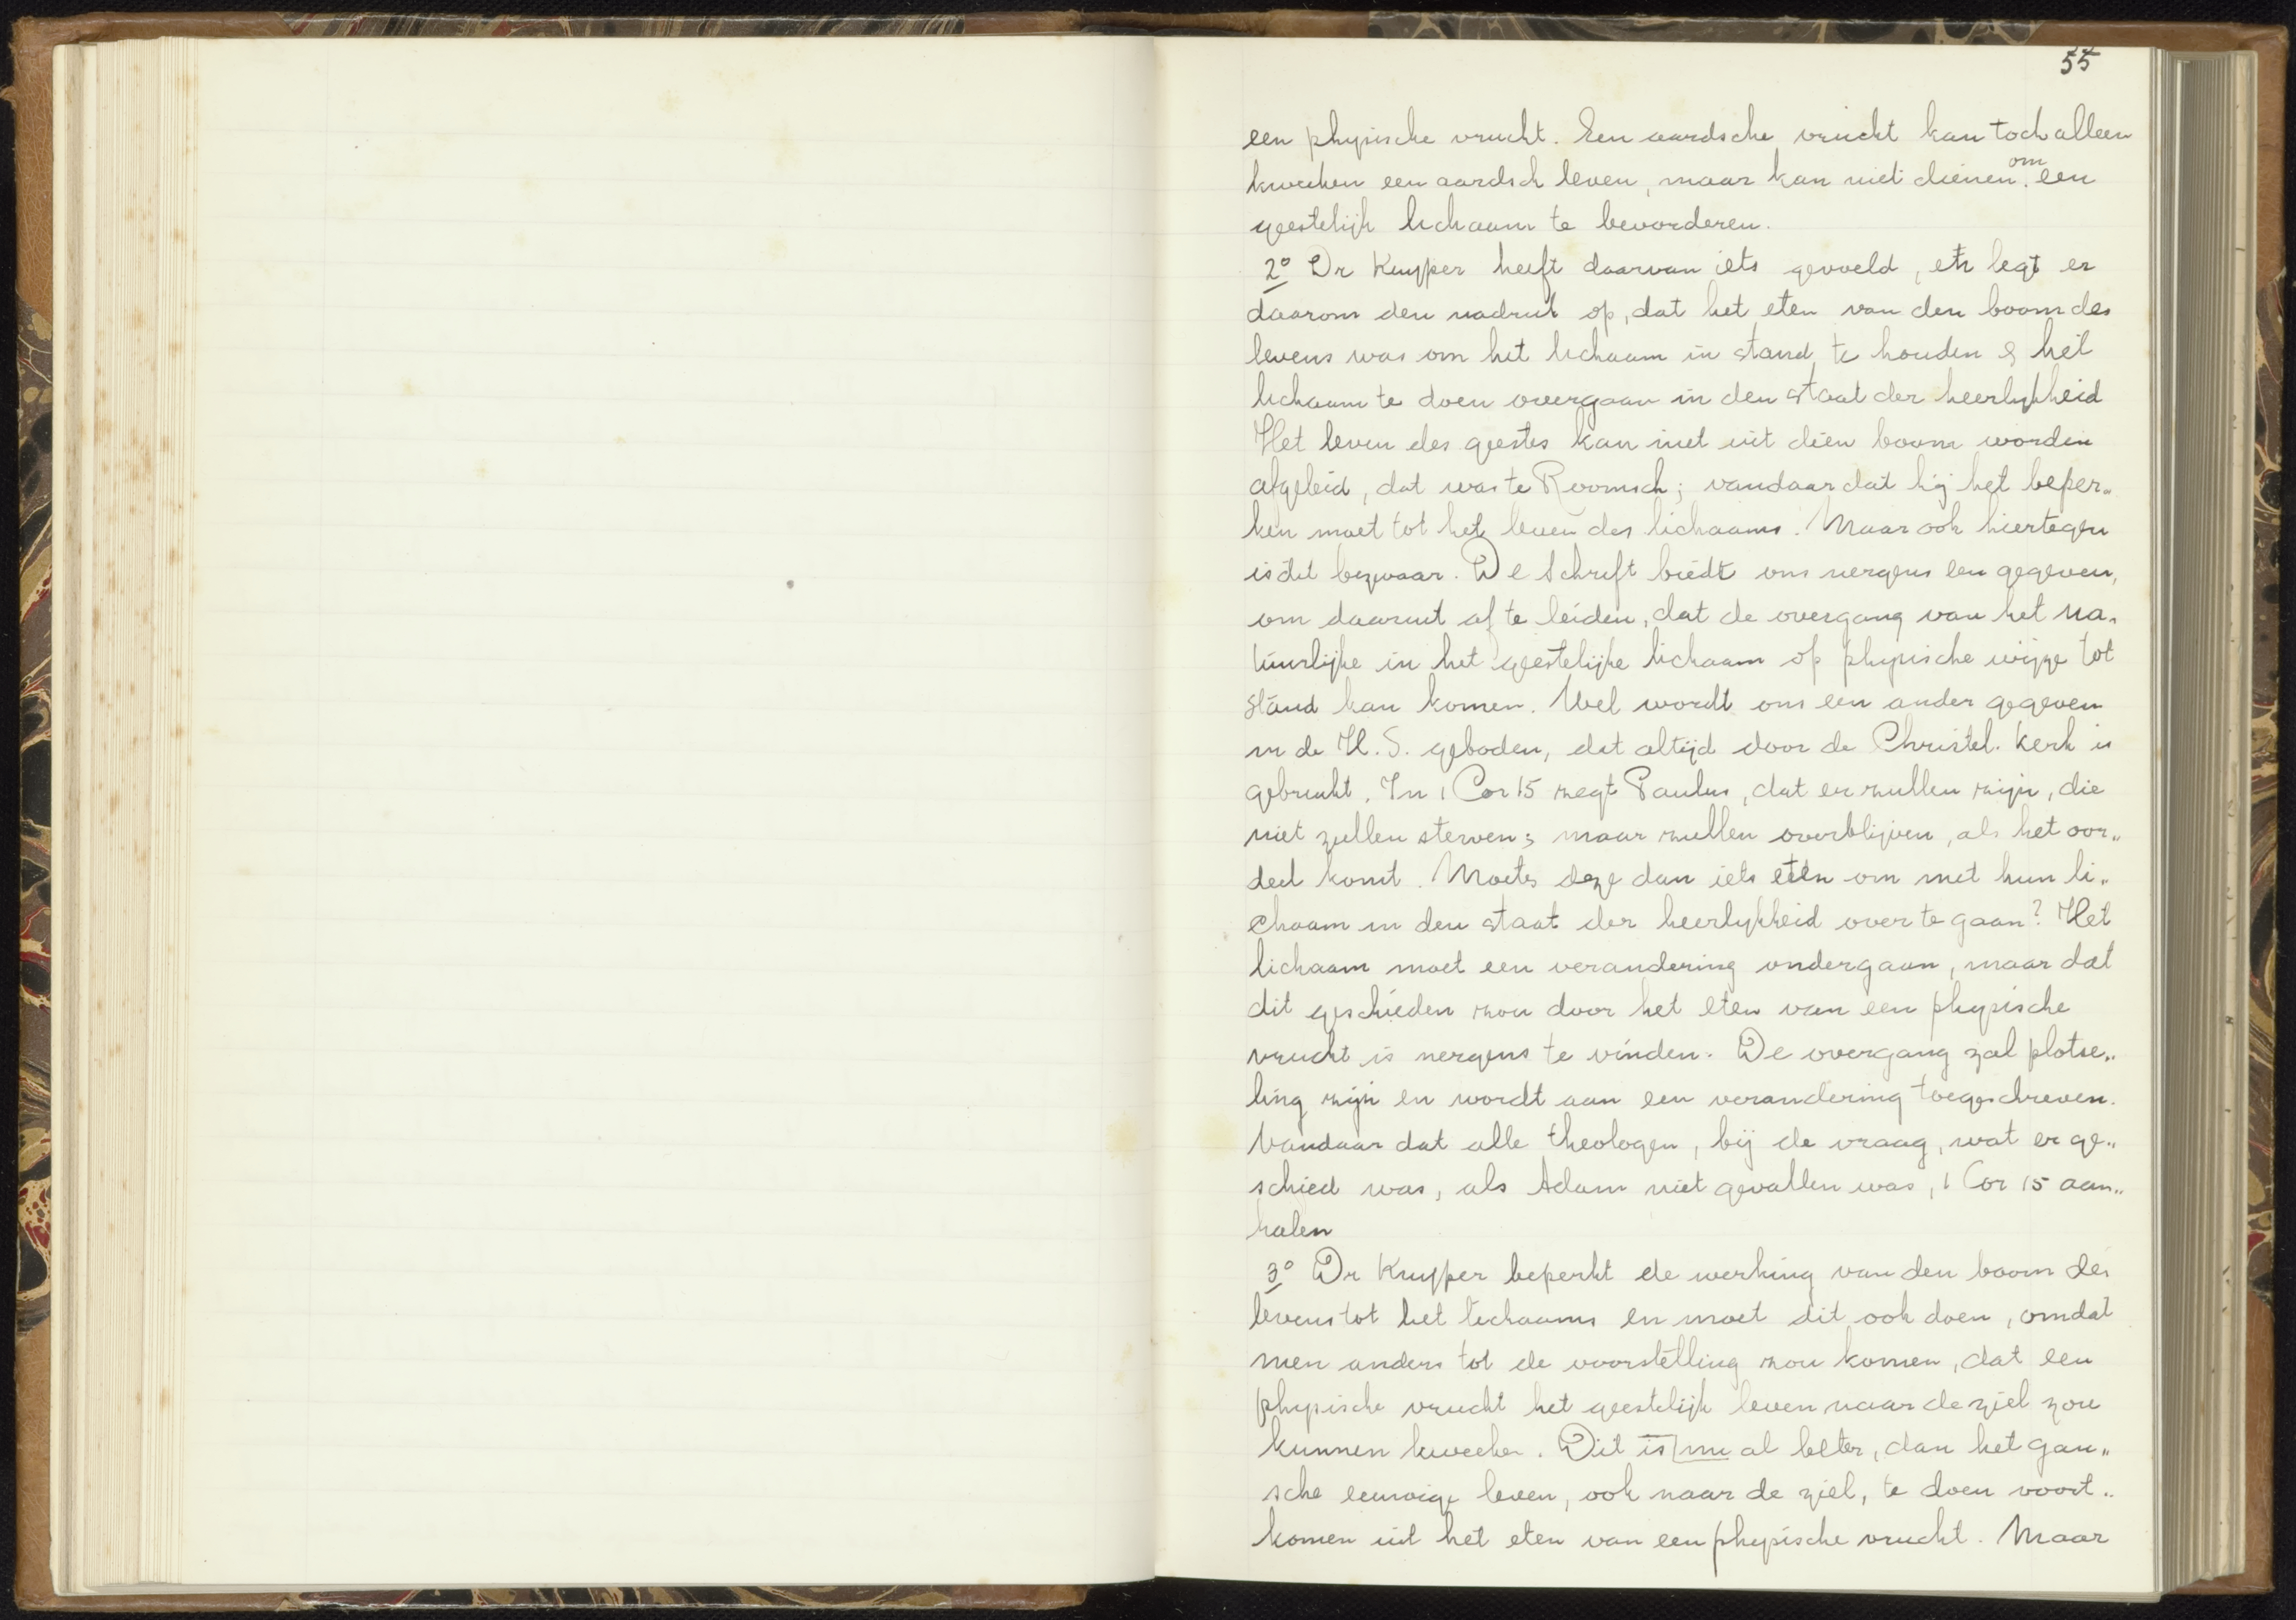 55
een physische vrucht. Een aardsche vrucht kan toch alleen
kweeken een aardsch leven, maar kan niet dienen om een
geestelijk lichaam te bevorderen.
2° Dr Kuyper heeft daarvan iets gevoeld, en legt er
daarom den nadruk op, dat het eten van den boom des
levens was om het lichaam in stand te houden & het
lichaam te doen overgaan in den staat der heerlykheid
Het leven des geestes kan niet uit dien boom worden
afgeleid, dat was te Roomsch; vandaar dat hij het beper„
ken moet tot het leven des lichaams. Maar ook hiertegen
is dit bezwaar. De Schrift biedt ons nergens een gegeven,
om daaruit af te leiden, dat de overgang van het na„
tuurlijke in het geestelijke lichaam op physische wijze tot
stand kan komen. Wel wordt ons een ander gegeven
in de H.S. geboden, dat altijd door de Christel. Kerk is
gebruikt. In 1 Cor 15 zegt Paulus, dat er zullen zijn, die
niet zullen sterven; maar zullen overblijven, als het oor„
deel komt. Moeten deze dan iets eten om met hun li„
chaam in den staat der heerlykheid over te gaan? Het
lichaam moet een verandering ondergaan, maar dat
dit geschieden zou door het eten van een physische
vrucht is nergens te vinden. De overgang zal plotse„
ling zijn en wordt aan een verandering toegeschreven.
Vandaar dat alle theologen, bij de vraag, wat er ge„
schied was, als Adam niet gevallen was, 1 Cor 15 aan„
halen
3° Dr Kuyper beperkt de werking van den boom des
levens tot het lichaams en moet dit ook doen, omdat
men anders tot de voorstelling zou komen, dat een
physische vrucht het geestelijk leven naar de ziel zou
kunnen kweeken. Dit is nu al beter, dan het gan„
sche eeuwige leven, ook naar de ziel, te doen voort„
komen uit het eten van een physische vrucht. Maar